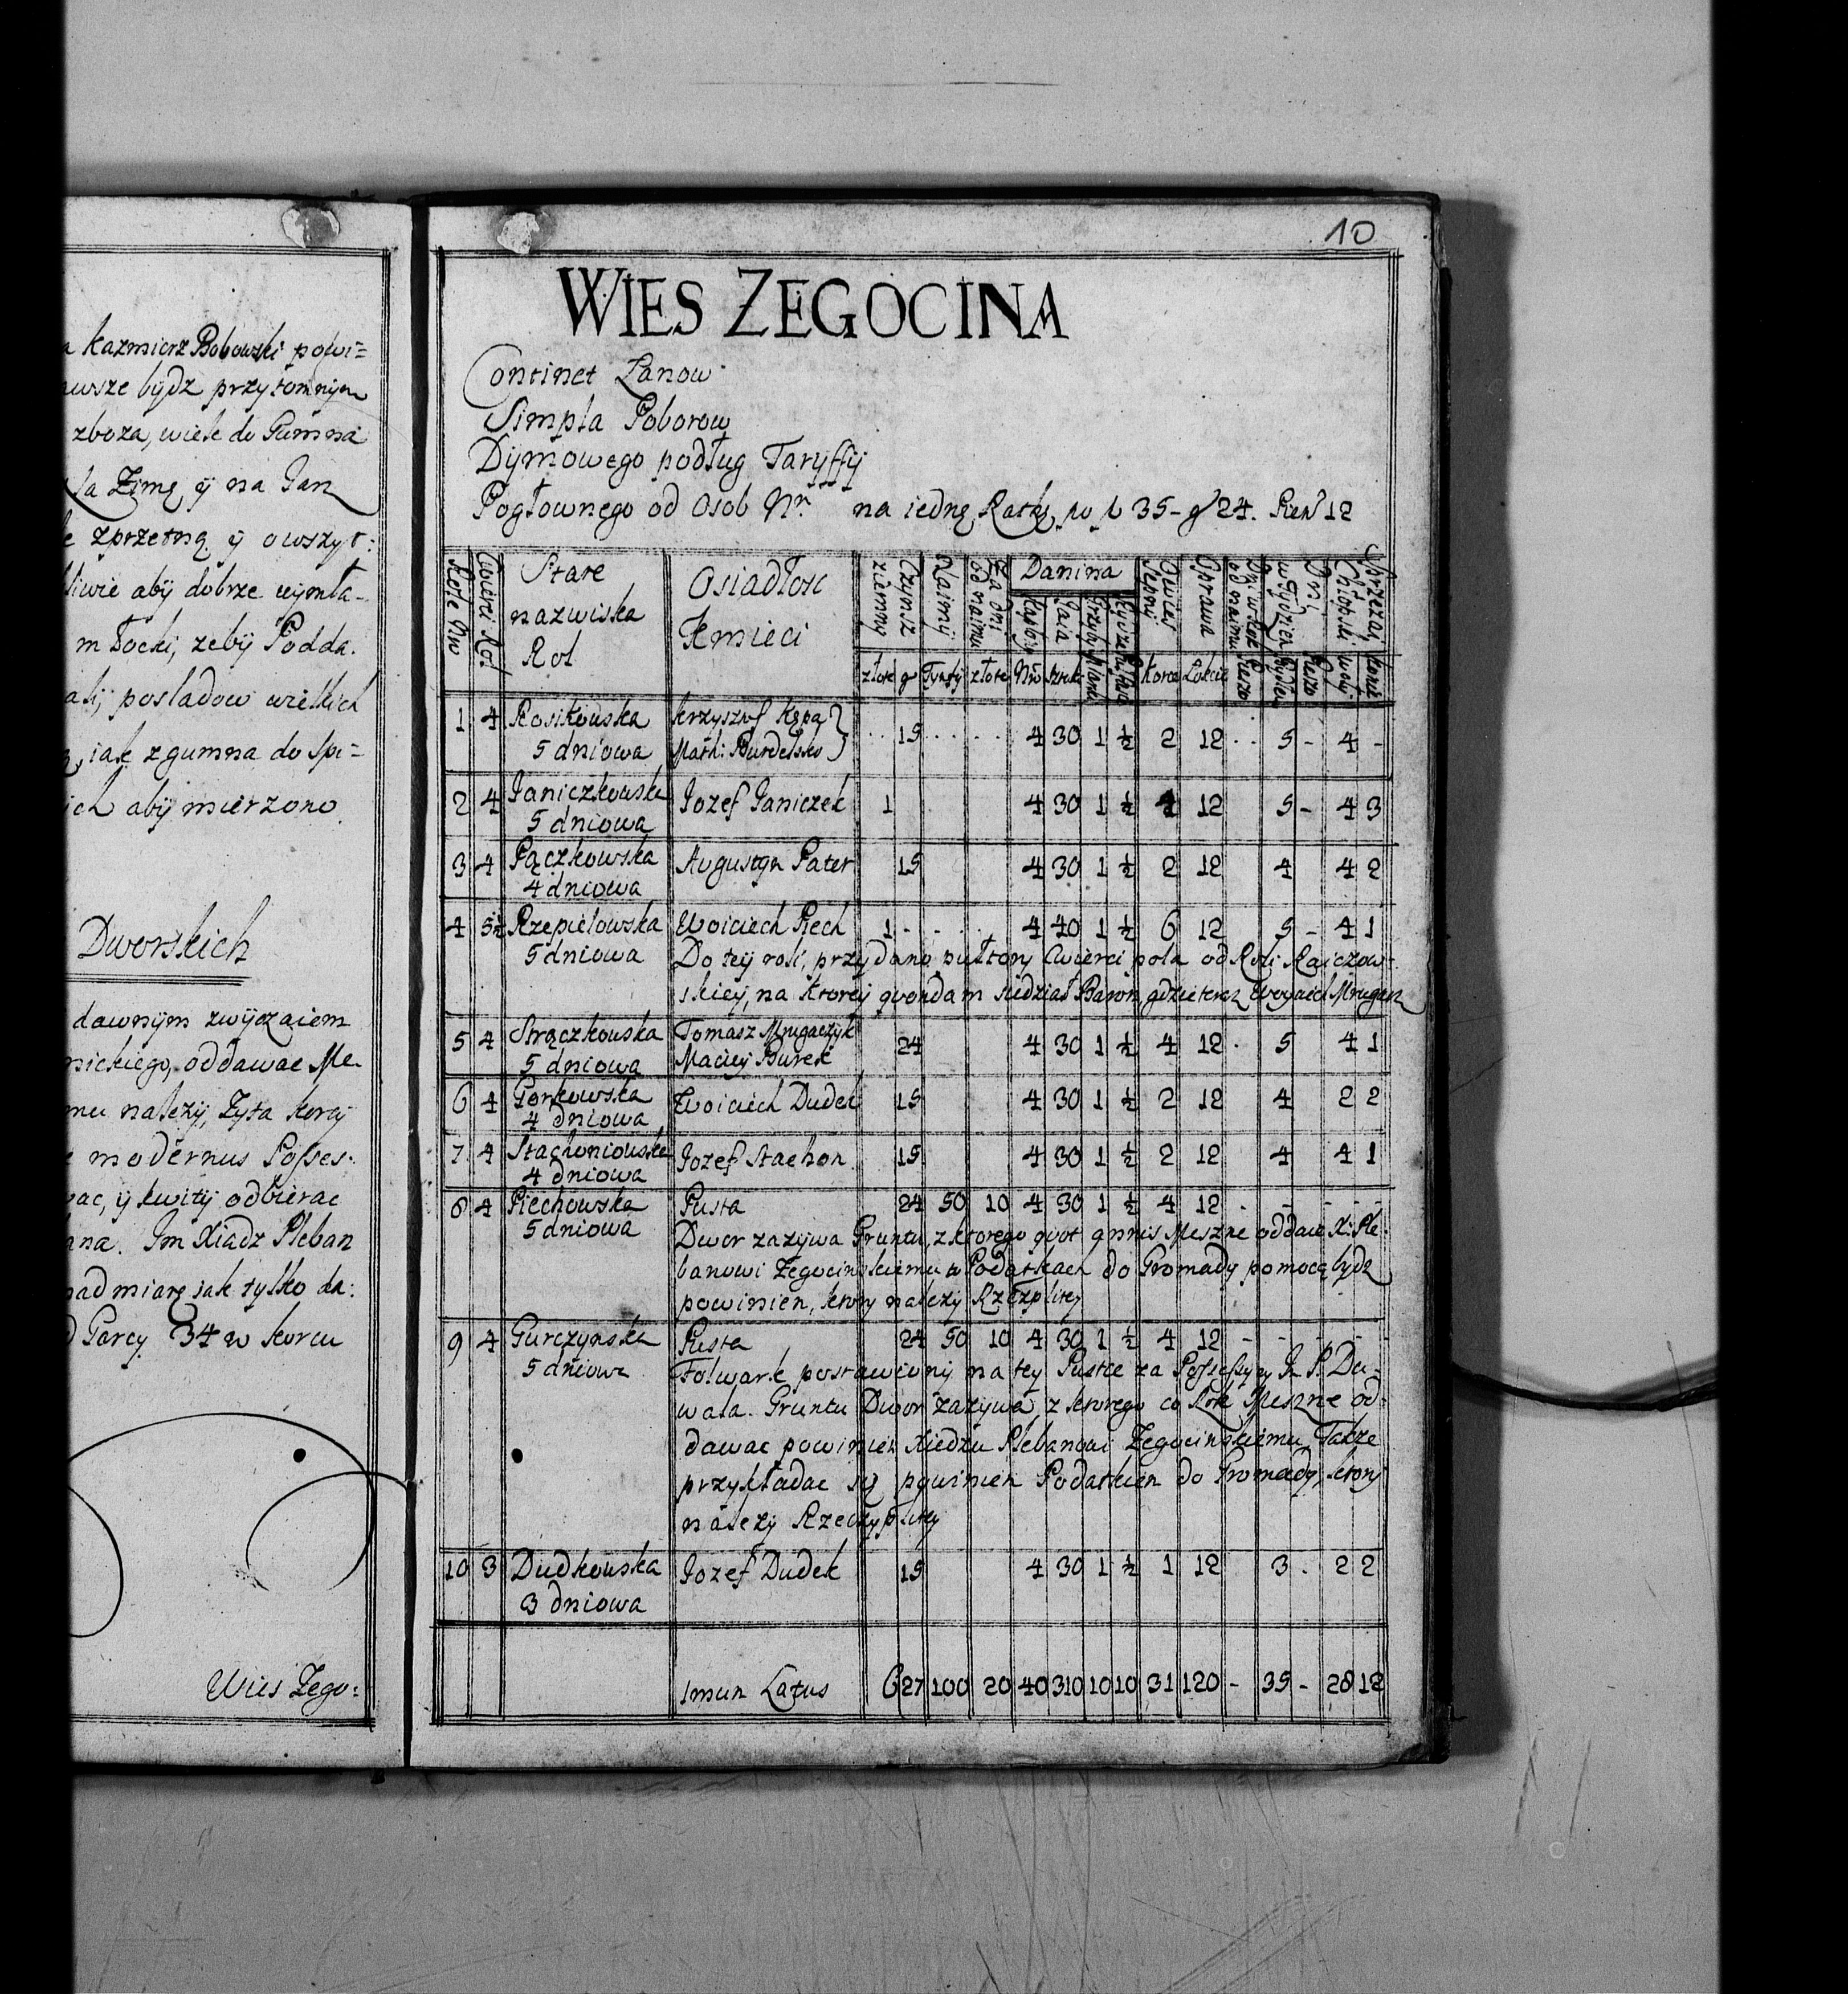 a Kazmierz Bobowski powi=
awsze bydz przytomnym
zboza, wiele do Gumna
la Zimę ÿ na Jarz
zprzetną ÿ owszyt:
liwie abÿ dobrze wymła-
młocki, zebÿ Podda.
posladow wielkich
iak z gumna do spi=
ich abÿ mierzono
Dworskich
dawnÿm zwÿczaiem
nickiego, oddawac Me-
mu nalezÿ, Zyta korcÿ
modernus Posses-
wac, ÿ kwitÿ odbierac
ana. Jm Xiadz Pleban
nad miarę iak tylko da:
Garcy 34 w korcu
Wies Zego:
10
WIES ZEGOCINA
Continet Łanow
Simpla Poborow
Dÿmowego podług Tarÿffÿ
Pogłownego od Osob Nr. na iednę Ratę po 35 - g 24. Pien 12
Role Nro
Cwierci Rol
Stare nazwiska Rol
Osiadłosc Kmieci
Czynsz ziemny
Naimÿ
Za dni od naimu
Danina
Kapłonÿ
Jaia
Owies Sepnÿ
Oprawa
w Tydzien
złote g złote Nro Korce Łokcie
1 4 Rosikowska 5 dniowa Krzysztof Kępa } .. 15 .... 4 30 1 ½ 2 12 .. 5 - 4 -
Math: Burdelsko }
2 4 Janiczkowska 5 dniowa Jozef Janiczek 1 4 30 1 ½ 4 12 5 - 4 3
3 4 Pączkowska 4 dniowa Augustyn Pater 15 4 30 1 ½ 2 12 4 4 2
4 5½ Rzepielowska 5 dniowa Woiciech Piech 1 - 4 40 1 ½ 6 12 5 - 4 1
Do teÿ roli, przydano pułtorÿ Cwierci pola od Roli Raiczow-
skieÿ, na ktoreÿ quondam siedział Baron, gdzie teraz Woyciech Mrugacz
5 4 Strączkowska 5 dniowa Tomasz Mrugaczÿk 24 4 30 1 ½ 4 12 . 5 4 1
Macieÿ Burek
6 4 Gorkowska 4 dniowa Woiciech Dudek 15 4 30 1 ½ 2 12 4 2 2
7 4 Stachoniowska 4 dniowa Jozef Stachon 15 4 30 1 ½ 2 12 4 4 1
8 4 Piechowska 5 dniowa Pusta 24 50 10 4 30 1 ½ 4 12 . - - - -
Dwor zazywa Gruntu, z ktorego quot annis Meszne oddaie X: Ple-
banowi Zegocinskiemu w Podatkach do Gromadÿ pomocą bÿdz
powinien, ktory nalezÿ Rzeczplitey
9 4 Gurczynska 5 dniowa Pusta 24 50 10 4 30 1 ½ 4 12 - - - - -
Folwark postawionÿ na teÿ Pustce za Possessyÿ J. P. Du-
wala. Gruntu Dwor zazywa z ktorego co Rok Meszne od-
dawac powinien Xiedzu Plebanowi Zegocinskiemu, Takze
przykładac się powinien Podatkiem do Gromady, ktory
nalezÿ Rzeczyplitey
10 3 Dudkowska 3 dniowa Jozef Dudek 15 4 30 1 ½ 1 12 3 . 2 2
Latus 6 27 100 20 40 310 10 10 31 120 - 35 - 28 12